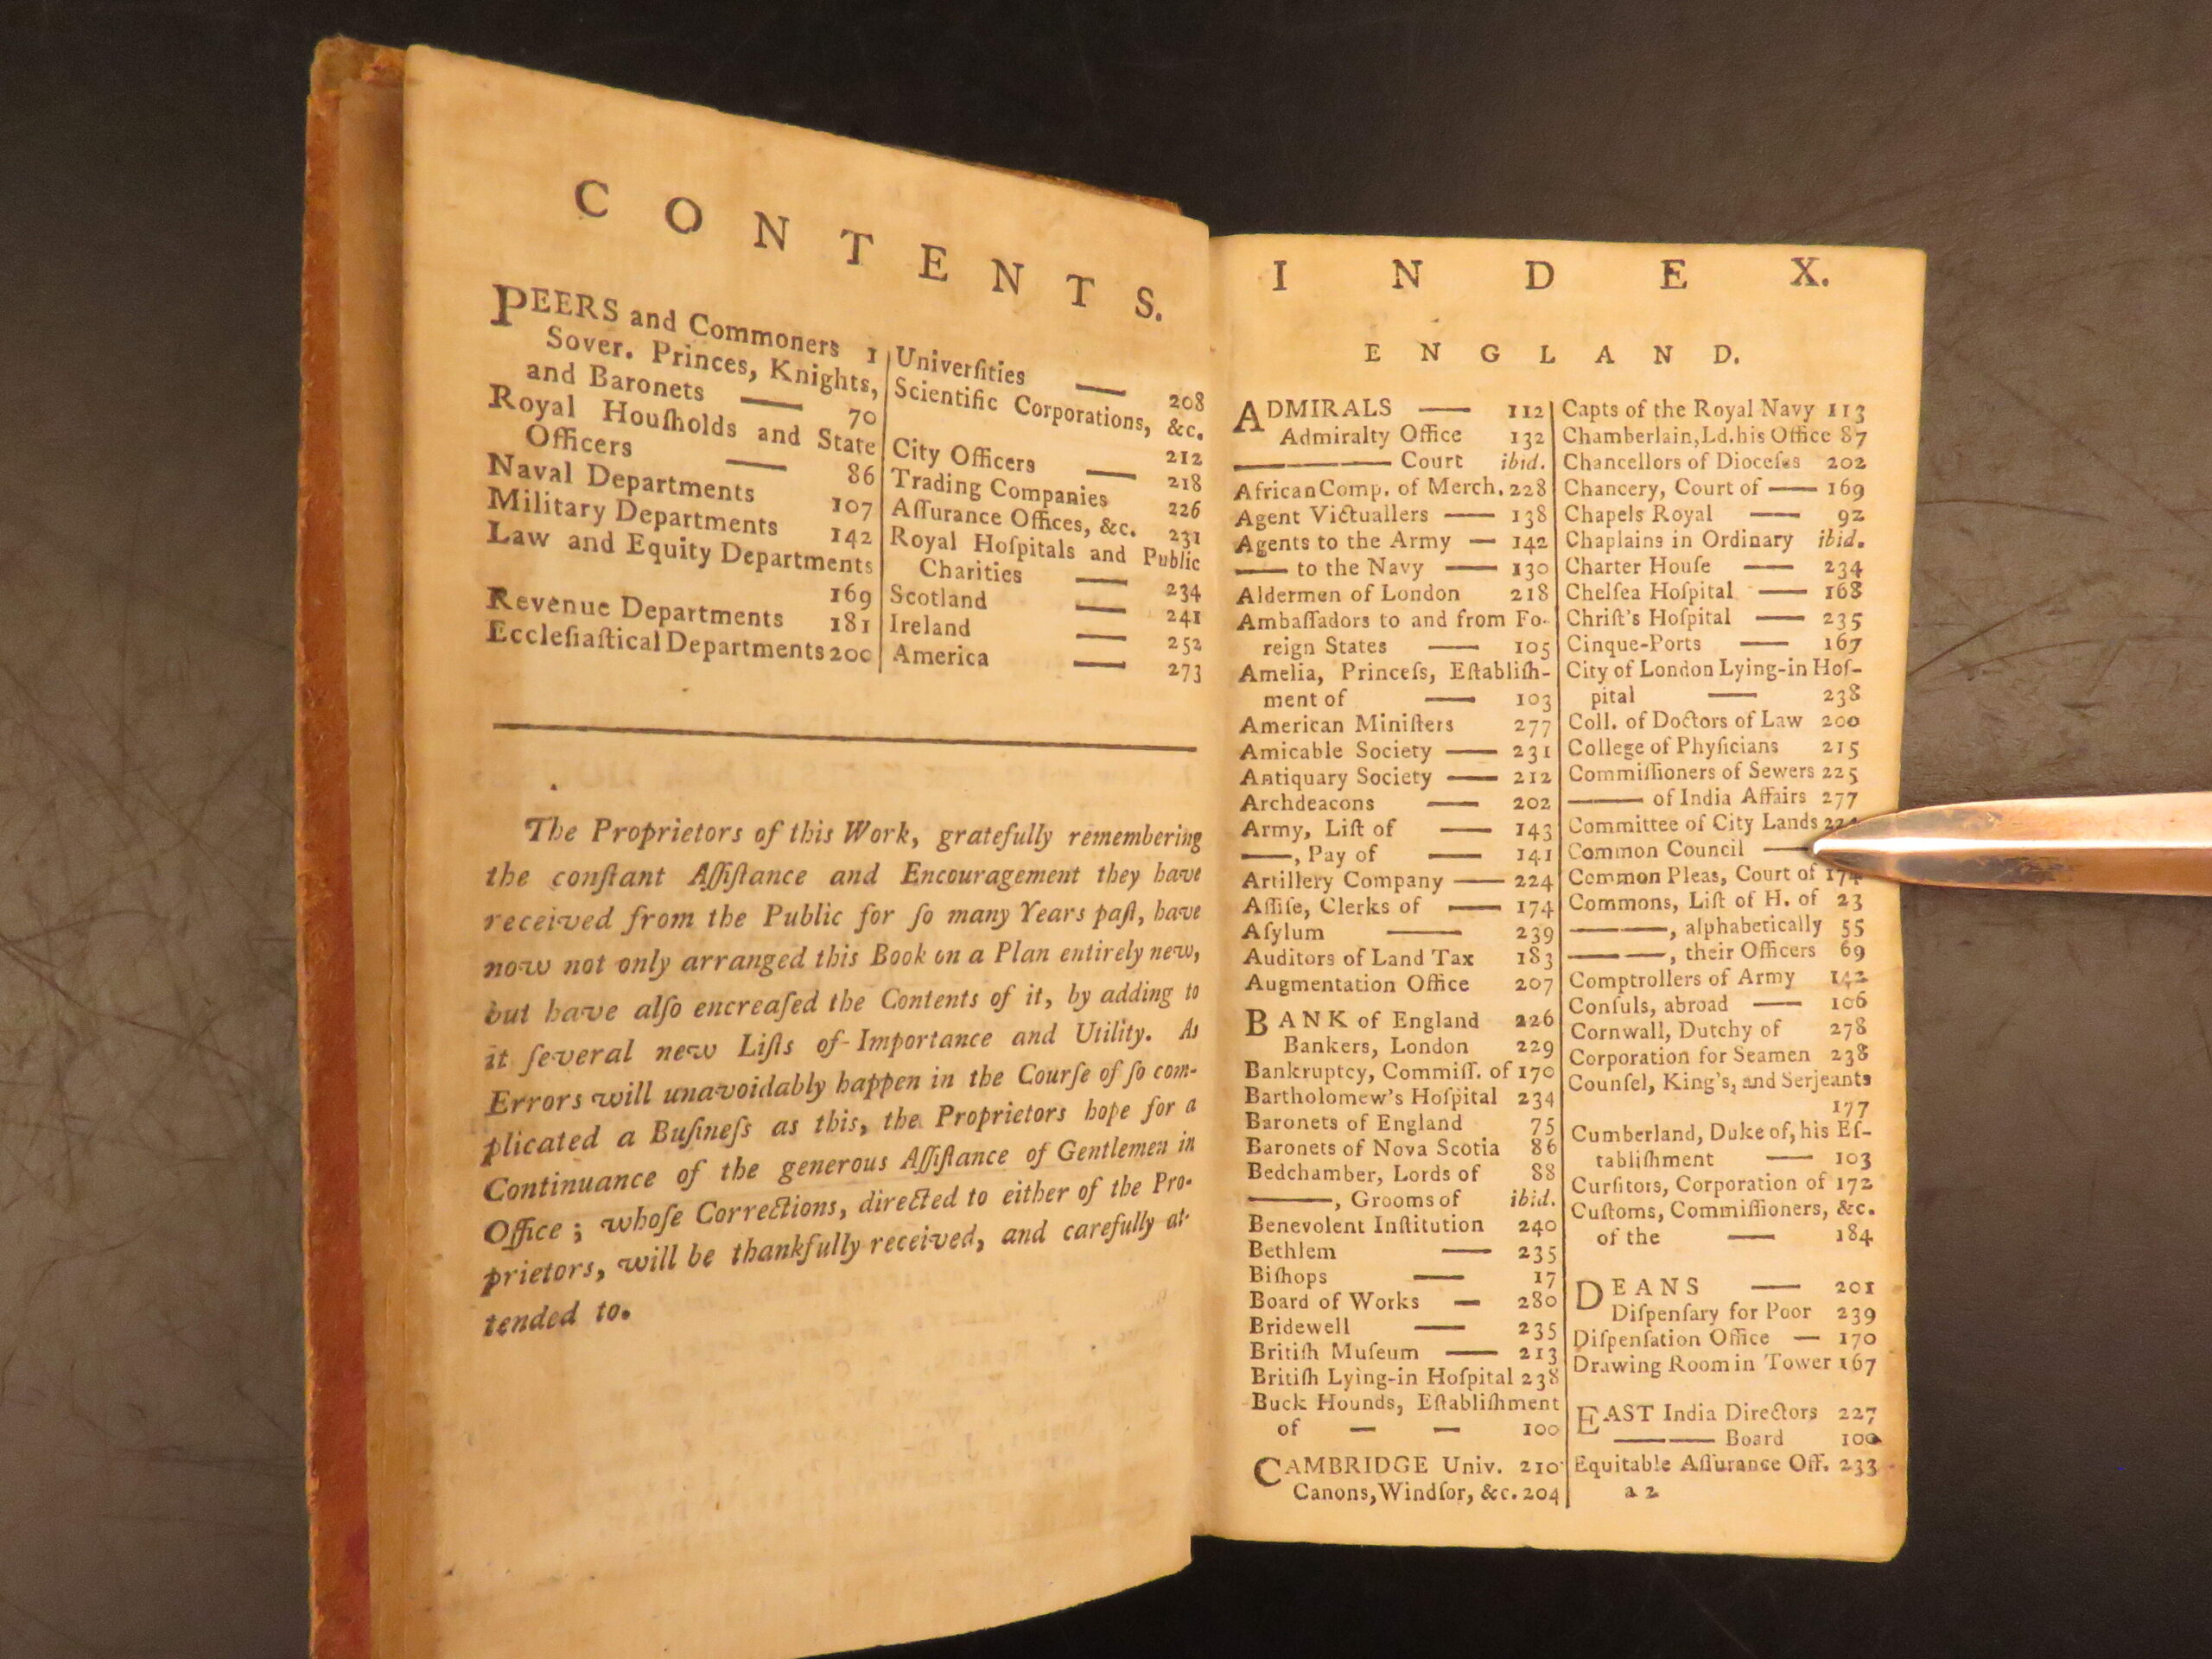 CONTENTS.
PEERS and Commoners 1
Sover. Princes, Knights,
and Baronets — 70
Royal Houſholds and State
Officers — 86
Naval Departments 107
Military Departments 142
Law and Equity Departments
169
Revenue Departments 181
Eccleſiaſtical Departments 200
Univerſities — 208
Scientific Corporations, &c.
212
City Officers — 218
Trading Companies 226
Aſſurance Offices, &c. 231
Royal Hoſpitals and Public
Charities — 234
Scotland — 241
Ireland — 252
America — 273
The Proprietors of this Work, gratefully remembering
the conſtant Aſſiſtance and Encouragement they have
received from the Public for ſo many Years paſt, have
now not only arranged this Book on a Plan entirely new,
but have alſo encreaſed the Contents of it, by adding to
it ſeveral new Liſts of Importance and Utility. As
Errors will unavoidably happen in the Courſe of ſo com-
plicated a Buſineſs as this, the Proprietors hope for a
Continuance of the generous Aſſiſtance of Gentlemen in
Office; whoſe Corrections, directed to either of the Pro-
prietors, will be thankfully received, and carefully at-
tended to.
INDEX.
ENGLAND.
ADMIRALS — 112
Admiralty Office 132
——— Court ibid.
African Comp. of Merch. 228
Agent Victuallers — 138
Agents to the Army — 142
— to the Navy — 130
Aldermen of London 218
Ambaſſadors to and from Fo-
reign States — 105
Amelia, Princeſs, Eſtabliſh-
ment of — 103
American Miniſters 277
Amicable Society — 231
Antiquary Society — 212
Archdeacons — 202
Army, Liſt of — 143
—, Pay of — 141
Artillery Company — 224
Aſſiſe, Clerks of — 174
Aſylum — 239
Auditors of Land Tax 183
Augmentation Office 207
BANK of England 226
Bankers, London 229
Bankruptcy, Commiſſ. of 170
Bartholomew's Hoſpital 234
Baronets of England 75
Baronets of Nova Scotia 86
Bedchamber, Lords of 88
——, Grooms of ibid.
Benevolent Inſtitution 240
Bethlem — 235
Biſhops — 17
Board of Works — 280
Bridewell — 235
Britiſh Muſeum — 213
Britiſh Lying-in Hoſpital 238
Buck Hounds, Eſtabliſhment
of — — 100
CAMBRIDGE Univ. 210
Canons, Windſor, &c. 204
Capts of the Royal Navy 113
Chamberlain, Ld. his Office 87
Chancellors of Dioceſes 202
Chancery, Court of — 169
Chapels Royal — 92
Chaplains in Ordinary ibid.
Charter Houſe — 234
Chelſea Hoſpital — 168
Chriſt's Hoſpital — 235
Cinque-Ports — 167
City of London Lying-in Hoſ-
pital — 238
Coll. of Doctors of Law 200
College of Phyſicians 215
Commiſſioners of Sewers 225
—— of India Affairs 277
Committee of City Lands
Common Council —
Common Pleas, Court of 174
Commons, Liſt of H. of 23
——, alphabetically 55
——, their Officers 69
Comptrollers of Army 142
Conſuls, abroad — 106
Cornwall, Dutchy of 278
Corporation for Seamen 238
Counſel, King's, and Serjeants
177
Cumberland, Duke of, his Eſ-
tabliſhment — 103
Curſitors, Corporation of 172
Cuſtoms, Commiſſioners, &c.
of the — 184
DEANS — 201
Diſpenſary for Poor 239
Diſpenſation Office — 170
Drawing Room in Tower 167
EAST India Directors 227
—— Board 100
Equitable Aſſurance Off. 233
a 2